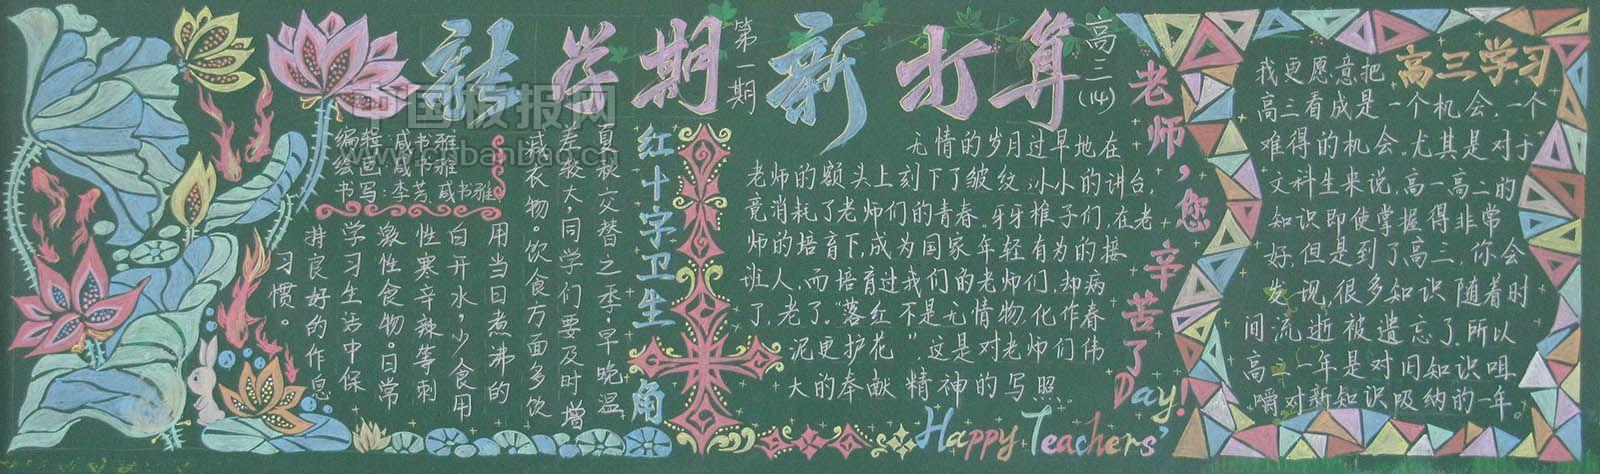 新学期新打算
第一期
高三(14)
中国板报网
www.cnbanbao.cn
编程:咸书雅
绘画:咸书雅
书写:李芳、咸书雅
红十字卫生角
夏秋交替之季,早晚温
差较大,同学们要及时增
减衣物。饮食方面多饮
用当日煮沸的
白开水,少食用
性寒辛辣等刺
激性食物。日常
学习生活中保
持良好的作息
习惯。
无情的岁月过早地在
老师的额头上刻下了皱纹,小小的讲台,
竟消耗了老师们的青春。牙牙稚子们,在老
师的培育下,成为国家年轻有为的接
班人,而培育过我们的老师们,却病
了,老了。"落红不是无情物,化作春
泥更护花"这是对老师们伟
大的奉献精神的写照。
老师,您辛苦了
Happy Teachers' Day!
高三学习
我更愿意把
高三看成是一个机会,一个
难得的机会。尤其是对于
文科生来说,高一高二的
知识即使掌握得非常
好,但是到了高三,你会
发现,很多知识随着时
间流逝被遗忘了,所以
高三一年是对旧知识咀
嚼对新知识吸纳的一年。